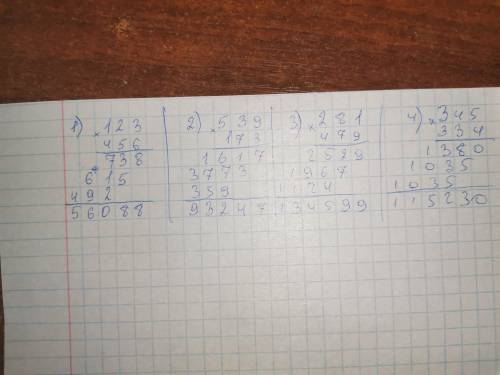 1) × 123
456
738
615
492
56088
2) × 539
173
1617
3773
359
93247
3) × 281
479
2529
1967
1124
134599
4) × 345
334
1380
1035
1035
115230